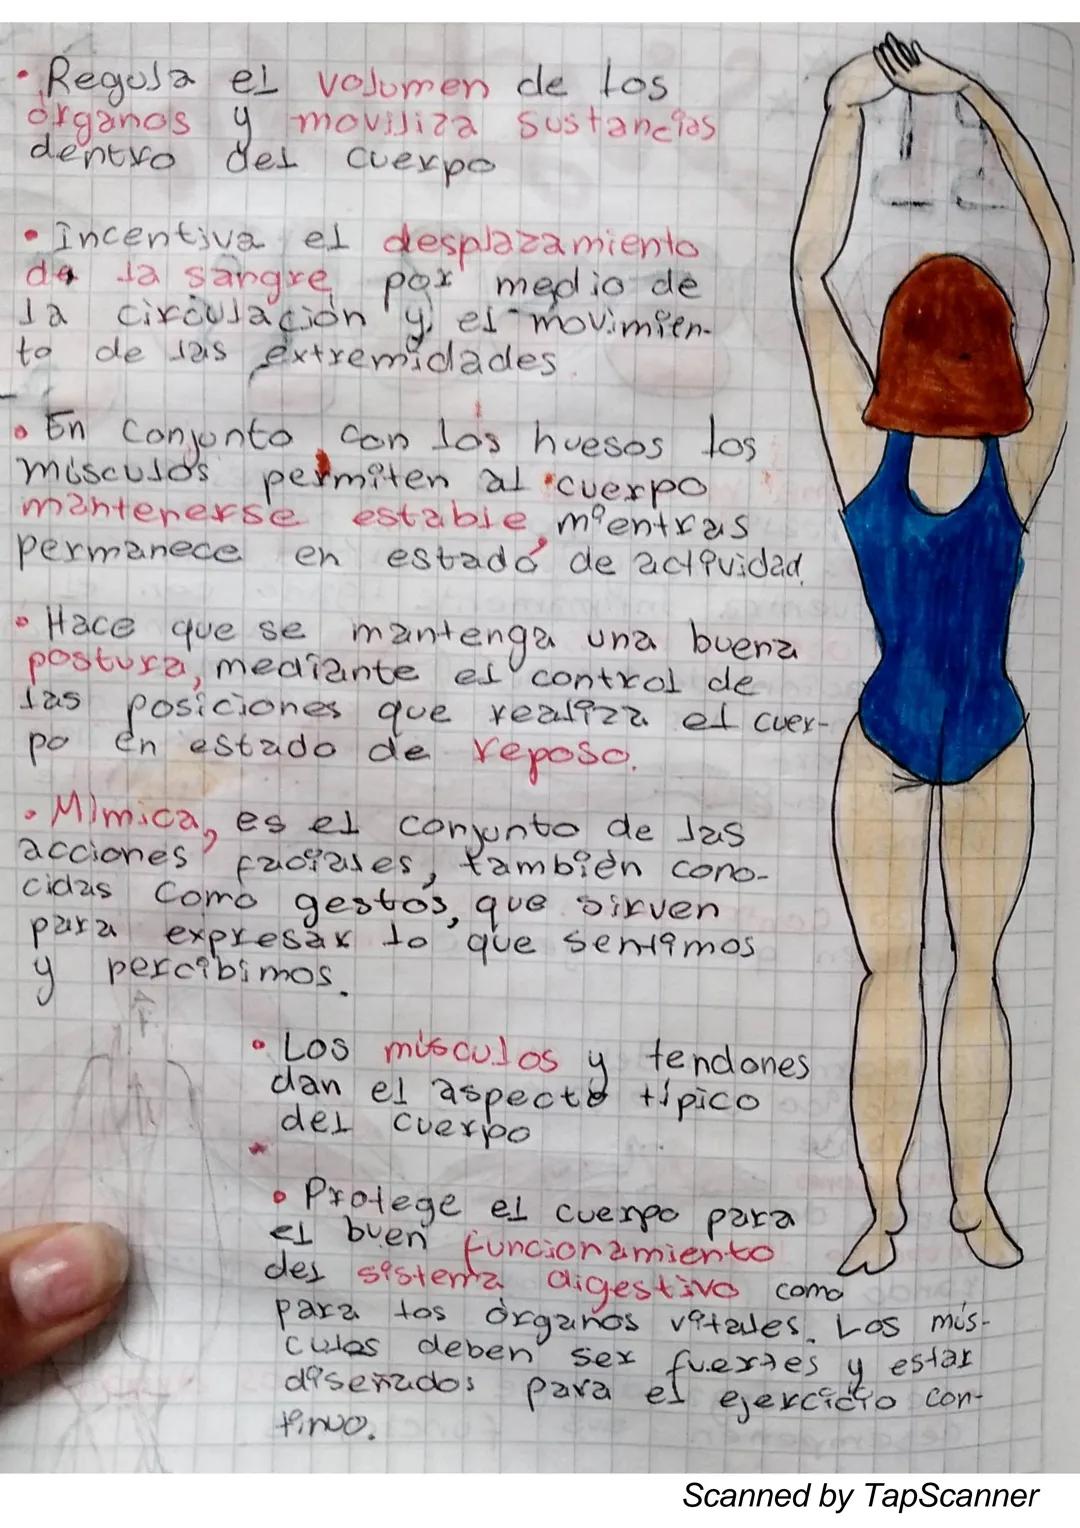 • Regula el volumen de los
órganos y moviliza sustancias
dentro del cuerpo
• Incentiva el desplazamiento
de la sangre por medio de
la circulación y el movimien-
to de las extremidades.
• En Conjunto con los huesos los
músculos permiten al cuerpo
mantenerse estable, mientras
permanece en estado de actividad.
• Hace que se mantenga una buena
postura, mediante el control de
las posiciones que realiza el cuer-
po en estado de reposo.
• Mímica, es el conjunto de las
acciones faciales, también cono-
cidas como gestos, que sirven
para expresar lo que sentimos
y percibimos.
• Los músculos y tendones
dan el aspecto típico
del cuerpo
• Protege el cuerpo para
el buen funcionamiento
del sistema digestivo como
para los órganos vitales. Los mús-
culos deben ser fuertes y estar
diseñados para el ejercicio con-
tinuo.
Scanned by TapScanner